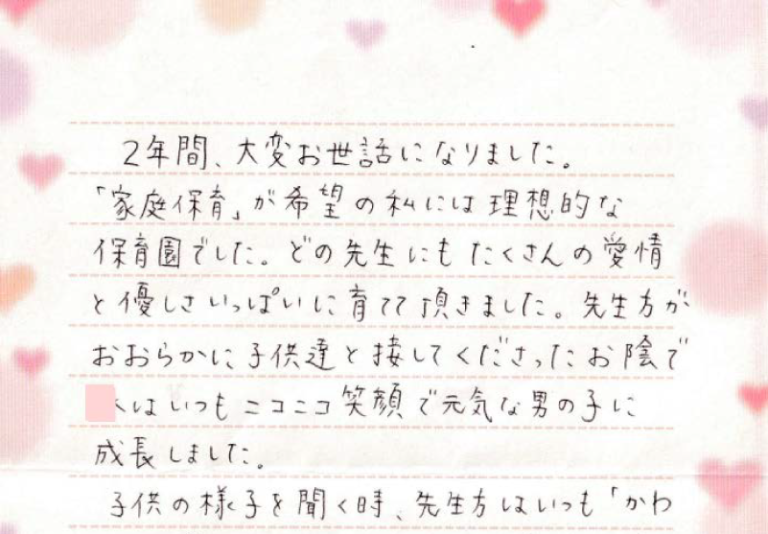 2年間、大変お世話になりました。
「家庭保育」が希望の私には理想的な
保育園でした。どの先生にもたくさんの愛情
と優しさいっぱいに育てて頂きました。先生方が
おおらかに子供達と接してくださったお陰で
はいつもニコニコ笑顔で元気な男の子に
成長しました。
子供の様子を聞く時、先生方はいつも「かわ